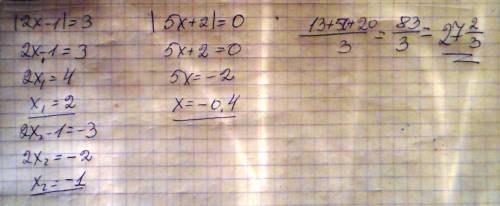 |2x-1|=3
2x-1=3
2x₁=4
x₁=2
2x₂-1=-3
2x₂=-2
x₂=-1
|5x+2|=0
5x+2=0
5x=-2
x=-0,4
(13+50+20)/3 = 83/3 = 27 2/3